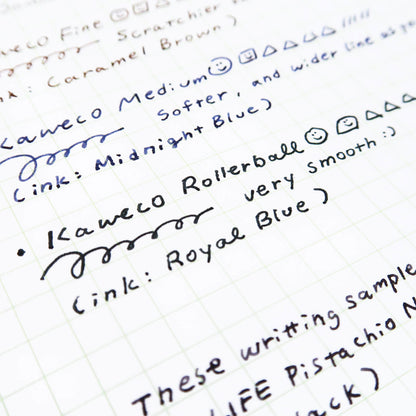 Kaweco Fine Scratchier
(ink: Caramel Brown)
Kaweco Medium
Softer, and wider line as
(ink: Midnight Blue)
• Kaweco Rollerball
very smooth :)
(ink: Royal Blue)
These writting sample
LIFE Pistachio